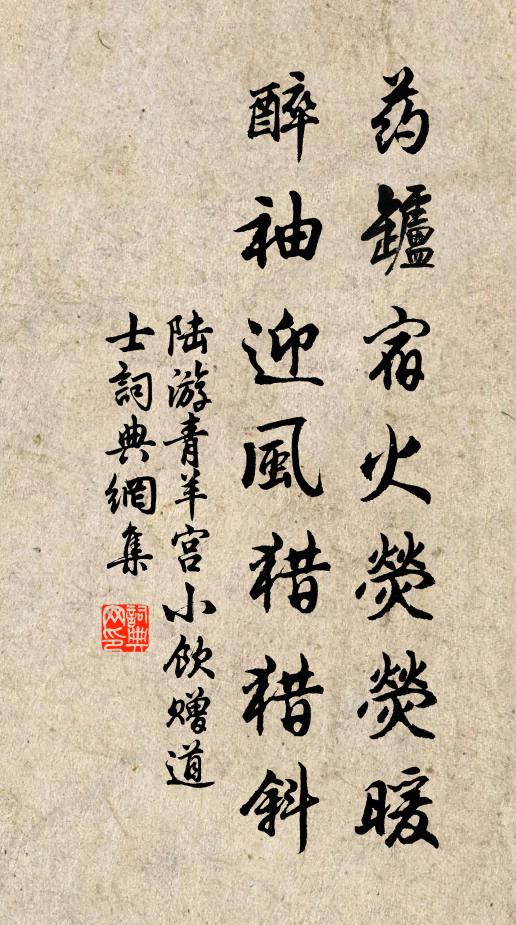 药鑪宿火熒熒暖
醉袖迎風猎猎斜
陆游青羊宫小饮赠道
士詞典網集
詞典网印